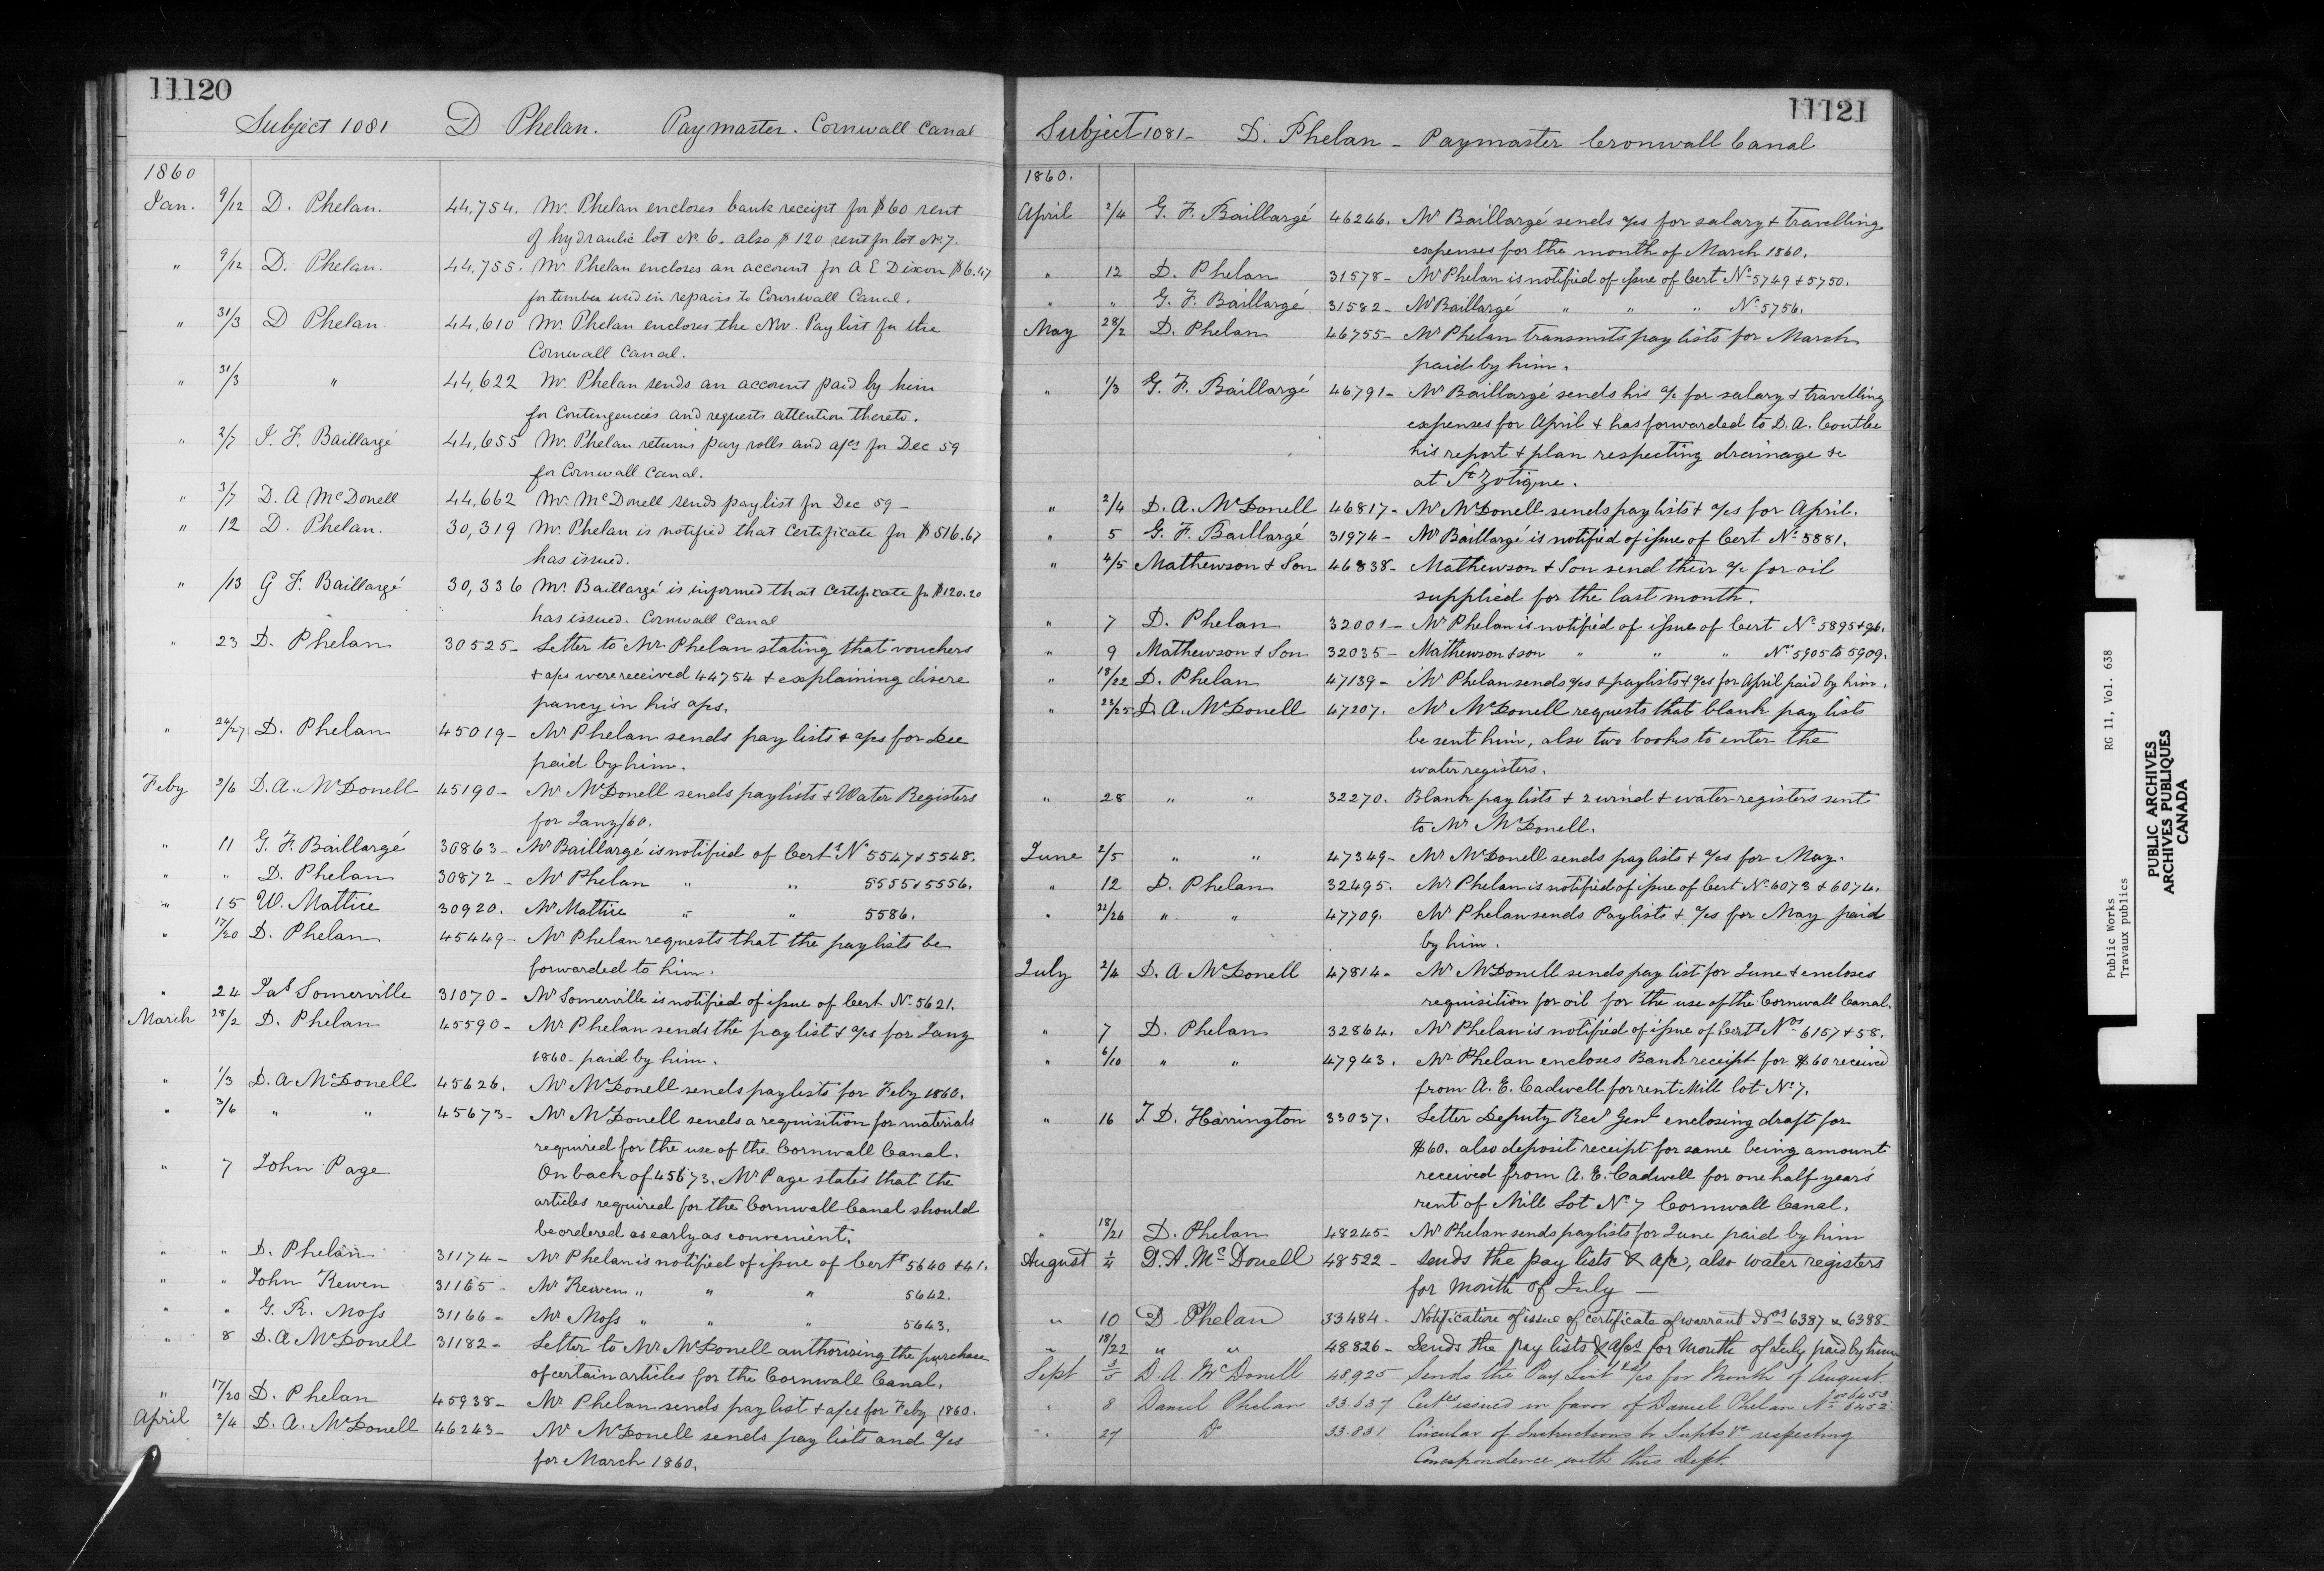 11120
Subject 1081 D Phelan. Paymaster. Cornwall Canal
1860
Jan. 9/12 D. Phelan. 44,754. Mr. Phelan encloses bank receipt for $60 rent
of hydraulic lot No. 6. also $120 rent for lot No 7.
" 9/12 D. Phelan. 44,755. Mr. Phelan encloses an account for A E Dixon $6.47
for timber used in repairs to Cornwall Canal.
" 31/3 D Phelan. 44,610 Mr. Phelan encloses the Nov. Pay list for the
Cornwall Canal.
" 31/3 " 44,622 Mr. Phelan sends an account paid by him
for Contingencies and requests attention thereto.
" 2/7 I. F. Baillargé 44,655 Mr. Phelan returns pay rolls and a/cs for Dec 59
for Cornwall Canal.
" 3/7 D. A McDonell 44,662 Mr. McDonell sends paylist for Dec 59 -
" 12 D. Phelan. 30,319 Mr. Phelan is notified that Certificate for $516.67
has issued.
" /13 G F. Baillargé 30,336 Mr. Baillargé is informed that Certificate for $120.20
has issued. Cornwall Canal
" 23 D. Phelan 30525- Letter to Mr Phelan stating that vouchers
+ a/cs were received 44754 + explaining discre
pancy in his a/cs.
" 26/27 D. Phelan 45019- Mr Phelan sends pay lists + a/cs for Dec
paid by him.
Feby 2/6 D. A. McDonell 45190- Mr McDonell sends paylists + Water Registers
for Jany/60.
" 11 G. F. Baillargé 30863- Mr Baillargé is notified of Certs No 5547 + 5548.
" " D. Phelan 30872- Mr Phelan " " 5555 + 5556.
" 15 W. Mattice 30920. Mr Mattice " " 5586.
" 17/20 D. Phelan 45449- Mr Phelan requests that the paylists be
forwarded to him.
" 24 Jas Somerville 31070- Mr Somerville is notified of issue of Cert No 5621.
March 28/2 D. Phelan 45590- Mr Phelan sends the paylist + a/cs for Jany
1860- paid by him.
" 1/3 D. A McDonell 45626. Mr McDonell sends paylists for Feby 1860.
" 3/6 " " 45673- Mr McDonell sends a requisition for materials
required for the use of the Cornwall Canal.
" 7 John Page On back of 45673. Mr Page states that the
articles required for the Cornwall Canal should
be ordered as early as convenient.
" " D. Phelan 31174- Mr Phelan is notified of issue of Certs 5640 + 41.
" " John Kewen 31165- Mr Kewen " " " 5642.
" " G. R. Moss 31166- Mr Moss " " " 5643.
" 8 D. A McDonell 31182- Letter to Mr McDonell authorizing the purchase
of certain articles for the Cornwall Canal.
" 17/20 D. Phelan 45938- Mr Phelan sends paylist + a/cs for Feby 1860.
April 2/4 D. A. McDonell 46243- Mr McDonell sends pay lists and a/cs
for March 1860.
11121
Subject 1081- D. Phelan - Paymaster Cronwall Canal
1860.
April 2/4 G. F. Baillargé 46246. Mr Baillargé sends a/cs for salary + travelling
expenses for the month of March 1860.
" 12 D. Phelan 31578- Mr Phelan is notified of issue of Cert No 5749 + 5750.
" " G. F. Baillargé 31582- Mr Baillargé " " " No 5756.
May 28/2 D. Phelan 46755- Mr Phelan transmits pay lists for March
paid by him.
" 1/3 G. F. Baillargé 46791- Mr Baillargé sends his a/c for salary + travelling
expenses for April + has forwarded to D. A. Coutlee
his report + plan respecting drainage &c
at St Zotique.
" 2/4 D. A. McDonell 46817- Mr McDonell sends pay lists + a/cs for April.
" 5 G. F. Baillargé 31974- Mr Baillargé is notified of issue of Cert No 5881.
" 4/5 Mathewson & Son 46838- Mathewson & Son send their a/c for oil
supplied for the last month.
" 7 D. Phelan 32001- Mr Phelan is notified of issue of Cert No 5895 + 96.
" 9 Mathewson & Son 32035- Mathewson & son " " " Nos 5905 to 5909.
" 18/22 D. Phelan 47139- Mr Phelan sends a/cs + paylists + a/cs for April paid by him.
" 22/25 D. A. McDonell 47207. Mr McDonell requests that blank pay lists
be sent him, also two books to enter the
water registers.
" 28 " " 32270. Blank pay lists + 2 wind + water registers sent
to Mr McDonell.
June 2/5 " " 47349- Mr McDonell sends paylists + a/cs for May.
" 12 D. Phelan 32495. Mr Phelan is notified of issue of Cert No 6073 + 6074.
" 22/26 " " 47709. Mr Phelan sends Paylists + a/cs for May paid
by him.
July 2/4 D. A McDonell 47814- Mr McDonell sends pay list for June + encloses
requisition for oil for the use of the Cornwall Canal.
" 7 D. Phelan 32864. Mr Phelan is notified of issue of Certs Nos 6157 + 58.
" 6/10 " " 47943. Mr Phelan encloses Bank receipt for $60 received
from A. E. Cadwell for rent Mill lot No 7.
" 16 T. D. Harrington 33037. Letter Deputy Recr Genl enclosing draft for
$60. also deposit receipt for same being amount
received from A. E. Cadwell for one half years
rent of Mill Lot No 7 Cornwall Canal.
" 18/21 D. Phelan 48245- Mr Phelan sends paylists for June paid by him
August 1/4 D. A. McDonell 48522- Sends the pay lists & a/c, also water registers
for Month of July -
" 10 D. Phelan 33484- Notification of issue of certificate of warrant Nos 6387 & 6388-
" 18/22 " " 48826- Sends the pay lists & a/cs for Month of July paid by him
Sept 3/5 D. A. McDonell 48925 Sends the Pay List & a/cs for Month of August.
" 8 Daniel Phelan 33.637 Certs issued in favor of Daniel Phelan Nos 6453 6452
" 27 Do 33.831 Circular of Instructions to Supts &c respecting
Correspondence with this Dept.
Public Works RG 11, Vol. 638
Travaux publics
PUBLIC ARCHIVES
ARCHIVES PUBLIQUES
CANADA